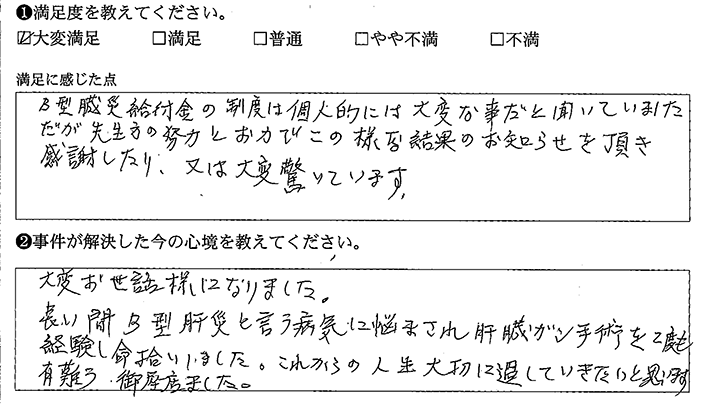 ❶満足度を教えてください。
☑大変満足 □満足 □普通 □やや不満 □不満
満足に感じた点
B型臓災給付金の制度は個人的には大変な事だと聞いていました
だが先生方の努力とお力でこの様な結果のお知らせを頂き
感謝したり、又は大変驚いています。
❷事件が解決した今の心境を教えてください。
大変お世話様になりました。
長い間B型肝災と言う病気に悩まされ肝臓ガン手術を2度も
経験し命拾いしました。これからの人生大切に過していきたいと思います
有難う御座居ました。